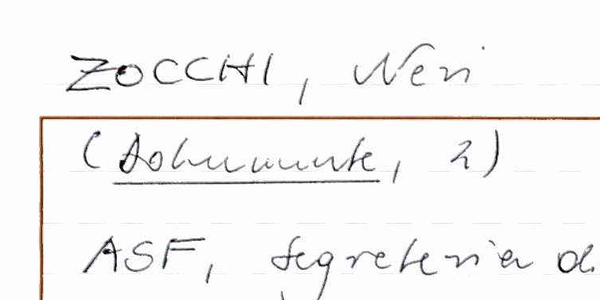 ZOCCHI, Neri
(Dokumente, 2)
ASF, Segreteria d